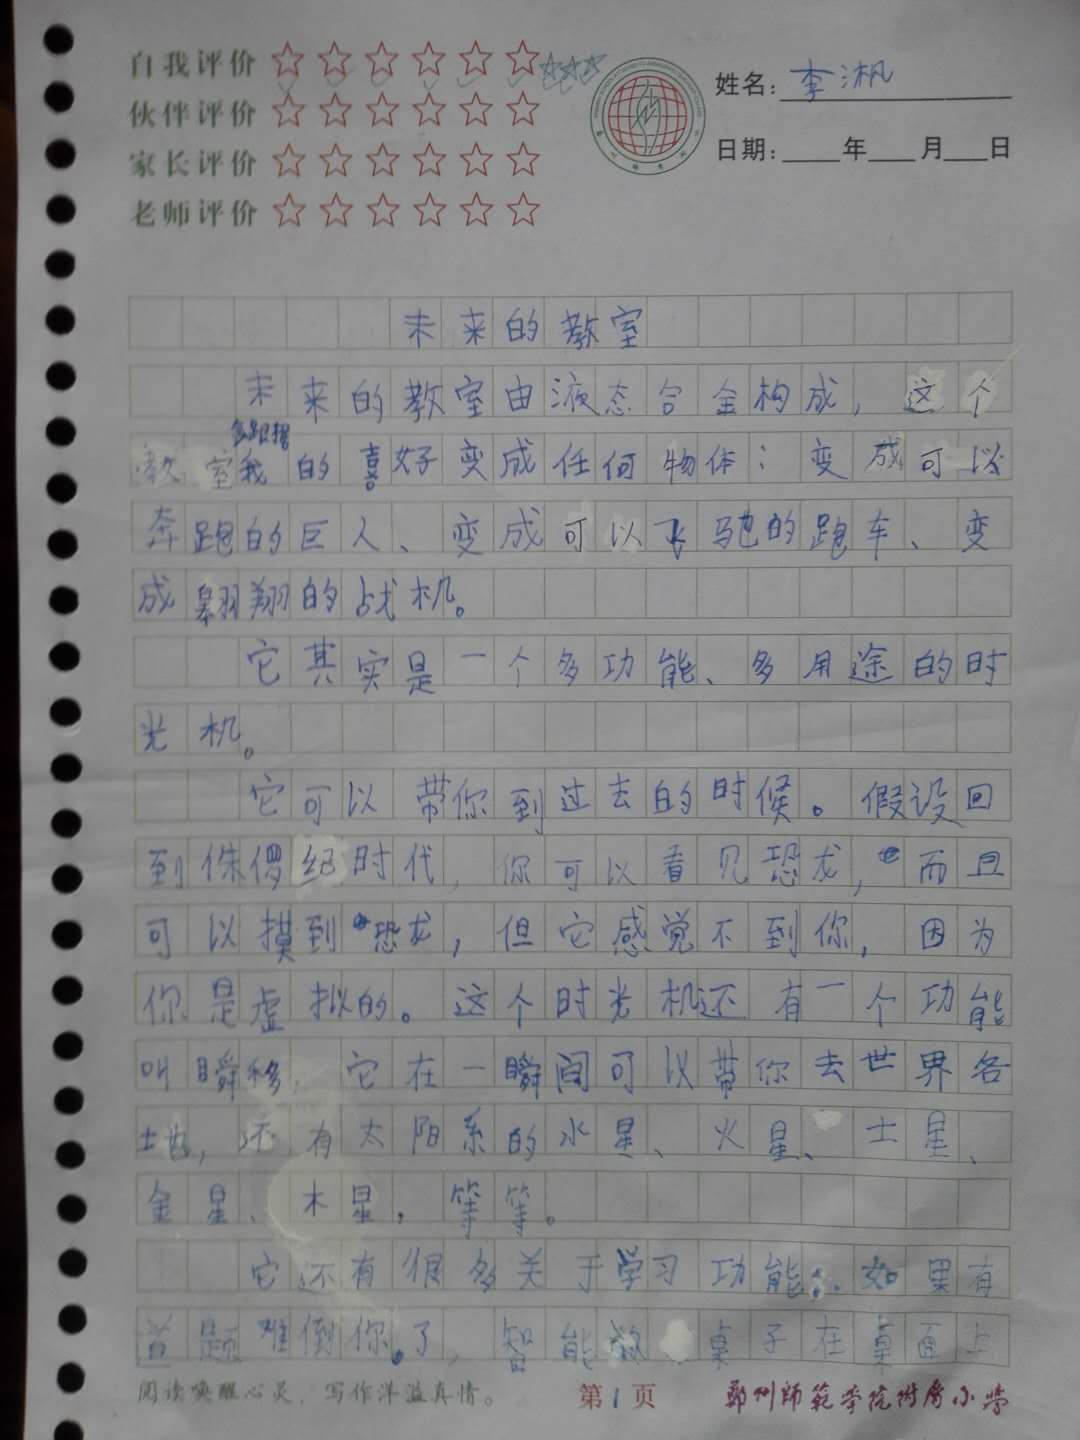 自我评价 ☆☆☆☆☆☆ ☆☆☆
伙伴评价 ☆☆☆☆☆☆
家长评价 ☆☆☆☆☆☆
老师评价 ☆☆☆☆☆☆
姓名：李淅枫
日期：____年____月____日
未来的教室
未来的教室由液态合金构成，这个
教室会跟据我的喜好变成任何物体：变成可以
奔跑的巨人、变成可以飞驰的跑车、变
成翱翔的战机。
它其实是一个多功能、多用途的时
光机。
它可以带你到过去的时候。假设回
到侏㑩纪时代，你可以看见恐龙，而且
可以摸到恐龙，但它感觉不到你，因为
你是虚拟的。这个时光机还有一个功能
叫瞬移，它在一瞬间可以带你去世界各
地，还有太阳系的水星、火星、土星、
金星、木星，等等。
它还有很多关于学习功能，如果有
道题难倒你了，智能桌子在桌面上
阅读唤醒心灵，写作洋溢真情。
第1页
郑州师范学院附属小学